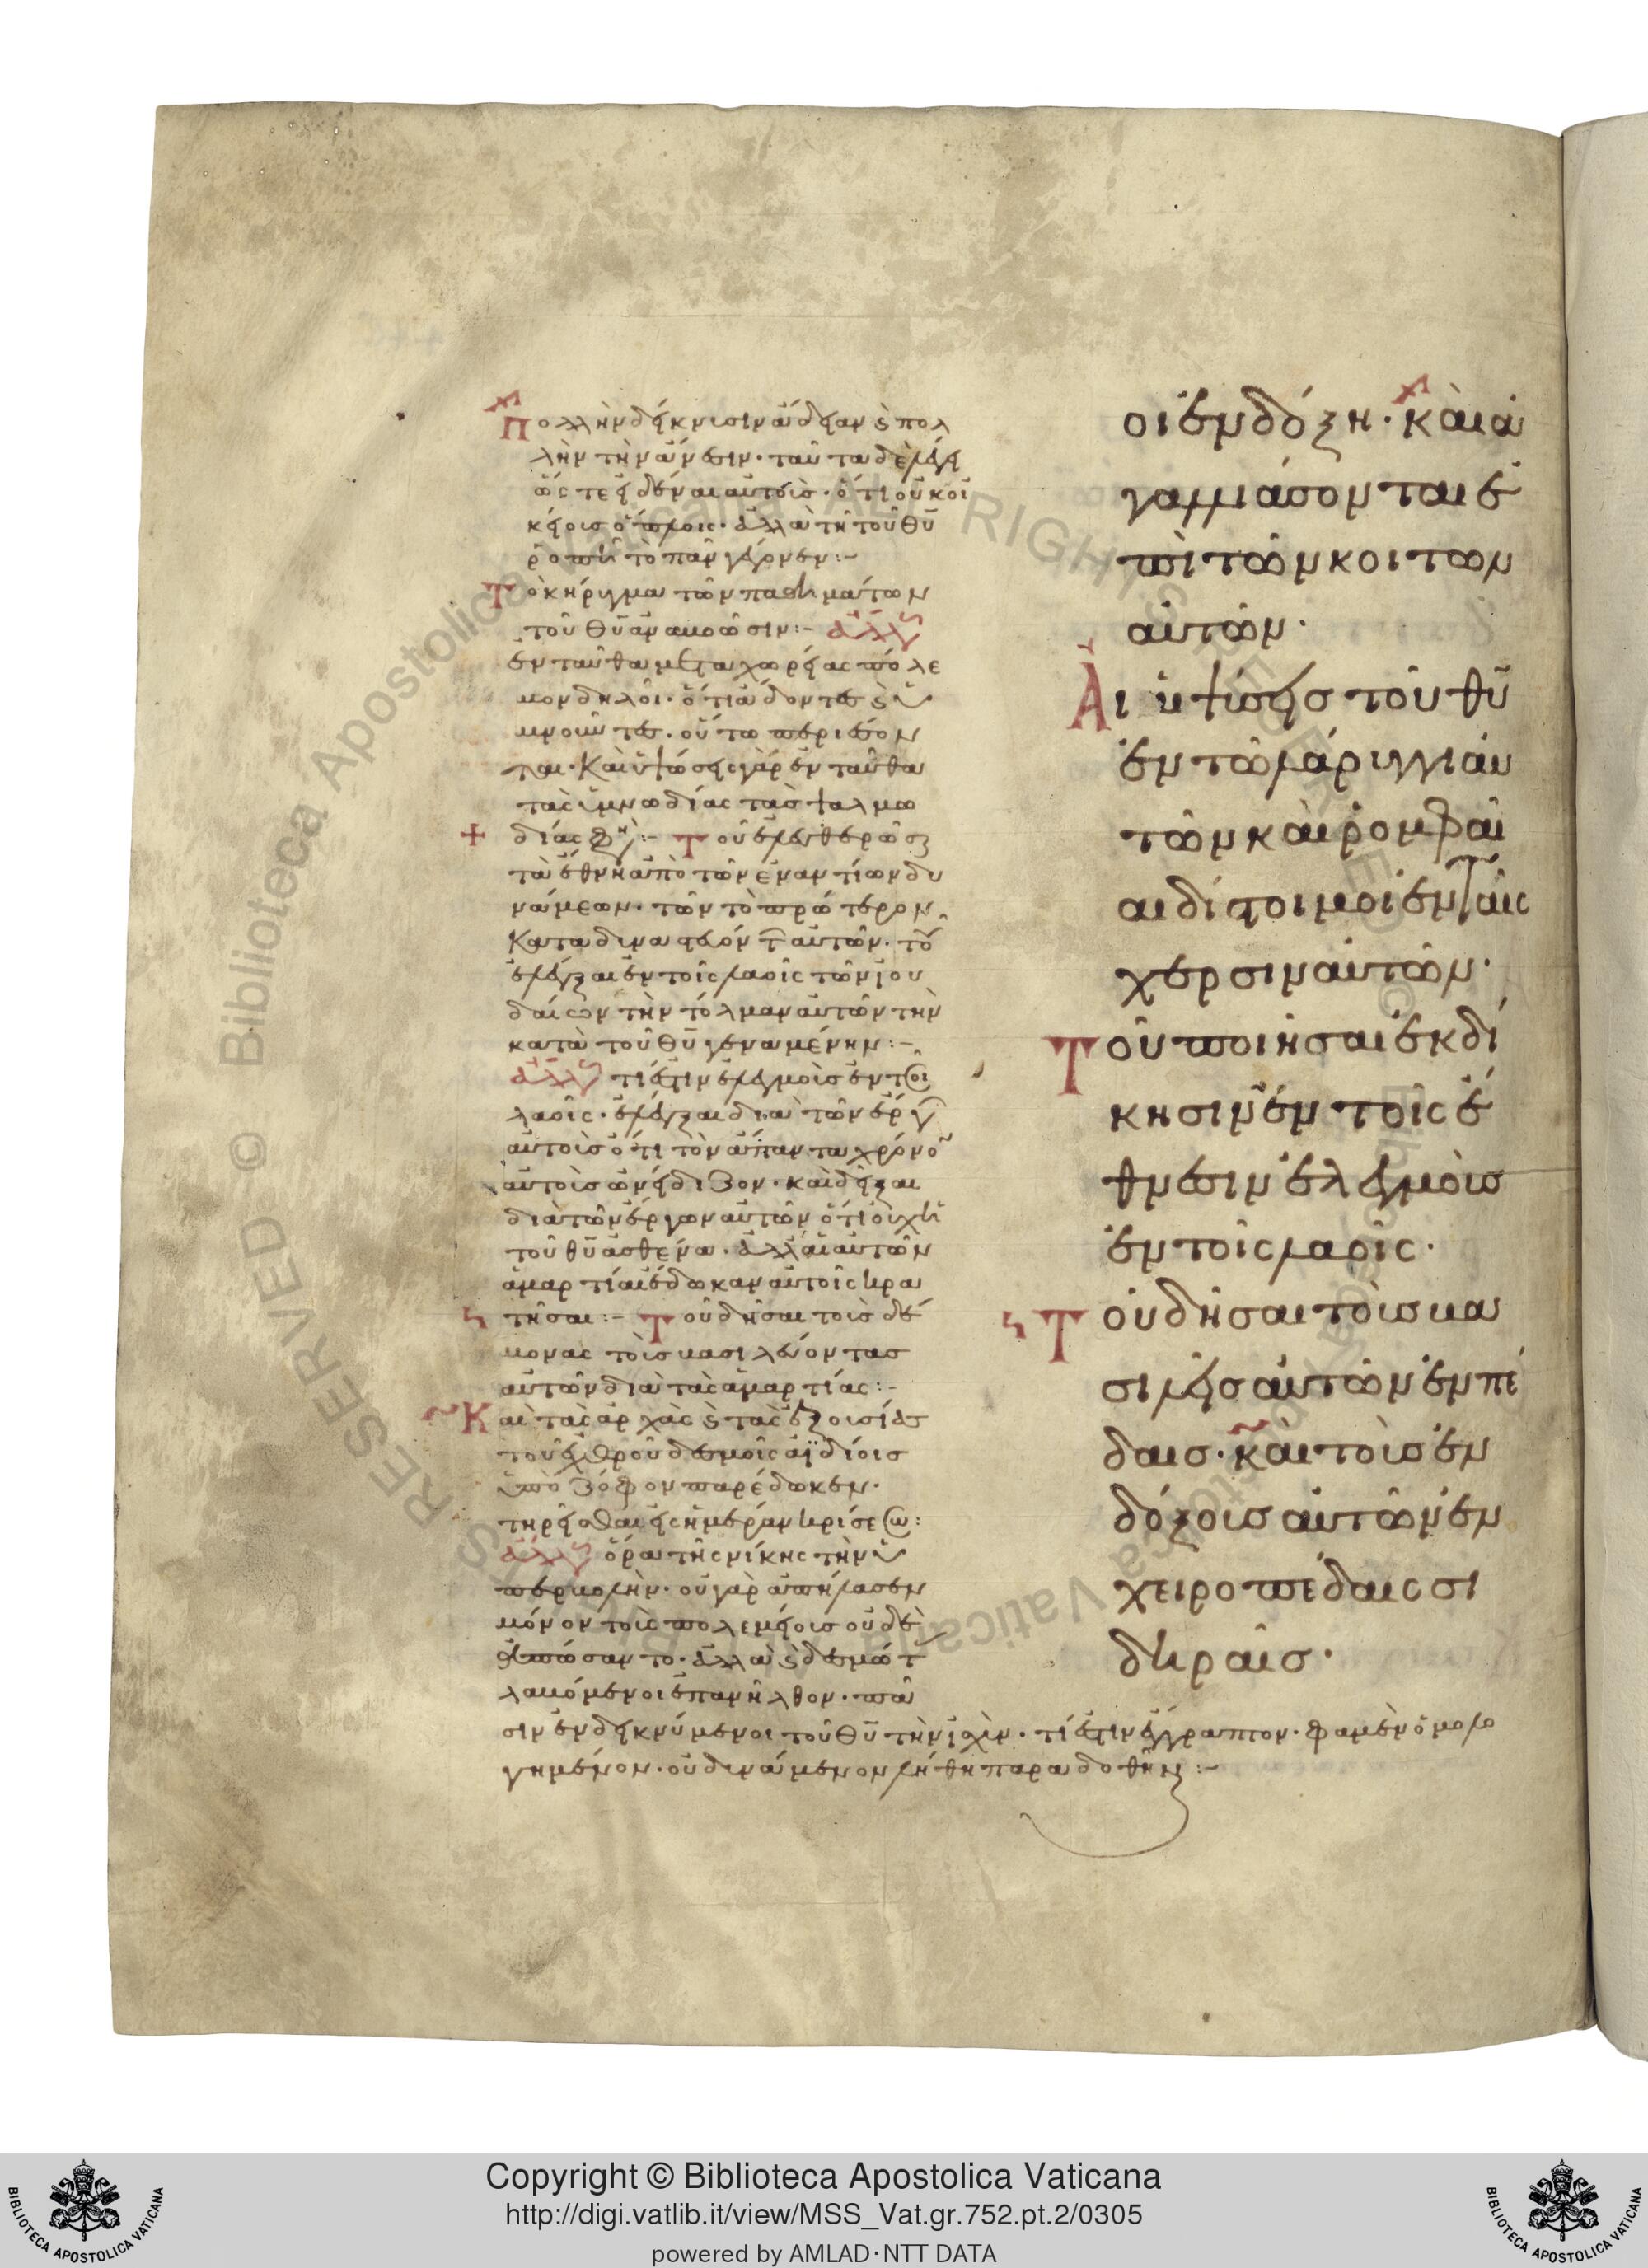 Πολλὴν δείκνυσιν ἄδειαν ϗ πολ
λὴν τὴν ἄνεσιν· ταῦτα δὲ λέγει
ὥστε εἰδέναι αὐτοὺς· ὅτι οὐκ οἰ
κείοις ὅπλοις· ἀλλὰ τῆ τοῦ θῦ
ῥοπῆ τὸ πᾶν γέγονεν:~
Τὸ κήρυγμα τῶν παθημάτων
τοῦ θῦ ἀναμοῶσιν:~ ἄλλς
ἐνταῦθα μετὰ χωρείας πόλε
μον δηλοῖ· ὅτι ἄδοντες ϗ ὑ
μνοῦντες· οὕτω περιεσον
ται· Καὶ ὑψώσεις γὰρ ἐνταῦθα
τὰς ὑμνωδίας τὰς ψαλμω
δίας φη:~ Τοῦ ἐλευθερῶσαι
τὰ ἔθνη ἀπὸ τῶν ἐναντίων δυ
νάμεων· τῶν τὸ πρότερον
καταδυναστευόντ αὐτῶν· τοῦ
ἐλέγξαι ἐν τοῖς λαοῖς τῶν ἰου
δαίων τὴν τόλμαν αὐτῶν τὴν
κατὰ τοῦ θῦ γεναμένην:~
ἄλλς τί ἐστιν ἐλεγμοὺς ἐν τοι
λαοῖς· ἐλέγξαι διὰ τῶν ἔργ
αὐτοὺς ὅτι τὸν ἅπαντα χρόνο
αὐτοὺς ὠνείδιζον· καὶ δεῖξαι
διὰ τῶν ἔργων αὐτῶν ὅτι οὐχ ἡ
τοῦ θῦ ἀσθένα· ἀλλ' αἱ αὐτῶν
ἁμαρτίαι ἔδωκαν αὐτοῖς κρα
τῆσαι:~ Τοῦ δῆσαι τοὺς δέ
μονας τοὺς βασιλεύοντας
αὐτῶν διὰ τὰς ἁμαρτίας:~
Καὶ τὰς ἀρχὰς ϗ τὰς ἐξουσίας
τοῦ ἐχθροῦ δεσμοῖς ἀϊδίοις
ὑπὸ ζόφον παρέδωκεν·
τηρεῖσθαι εἰς ἡμέραν κρίσεω:
ἄλλς ὅρα τῆς νίκης τὴν ὑ
περβολήν· οὐ γὰρ ἀπήλασεν
μόνον τοὺς πολεμείους οὐδὲ
ἀπώσαντο· ἀλλὰ ϗ δεσμώτ
λαβόμενοι ἐπανῆλθον· πᾶ
σιν ἐνδεικνύμενοι τοῦ θῦ τὴν ἰσχὺν· τί ἐστιν ἔγγραπτον· φαμὲν ὁμολο
γημένον· οὐ δυνάμενον λήθη παραδοθῆναι:~
οι ἐν δόξη· καὶ ἀ
γαλλιάσονται ἐ
πὶ τῶν κοιτῶν
αὐτῶν·
Αἱ ὑψώσεις τοῦ θῦ
ἐν τῶ λάρυγγι αὐ
τῶν καὶ ῥομφαῖ
αι δίστομοι ἐν ταῖς
χερσιν αὐτῶν·
Τοῦ ποιῆσαι ἐκδί
κησιν ἐν τοῖς ἔ
θνεσιν ἐλεγμοὺς
ἐν τοῖς λαοῖς·
Τοῦ δῆσαι τοὺς βα
σιλεῖς αὐτῶν ἐν πέ
δαις· καὶ τοὺς ἐν
δόξους αὐτῶν ἐν
χειροπέδαις σι
δηραῖς·
Copyright © Biblioteca Apostolica Vaticana
http://digi.vatlib.it/view/MSS_Vat.gr.752.pt.2/0305
powered by AMLAD·NTT DATA
BIBLIOTECA APOSTOLICA VATICANA
BIBLIOTECA APOSTOLICA VATICANA